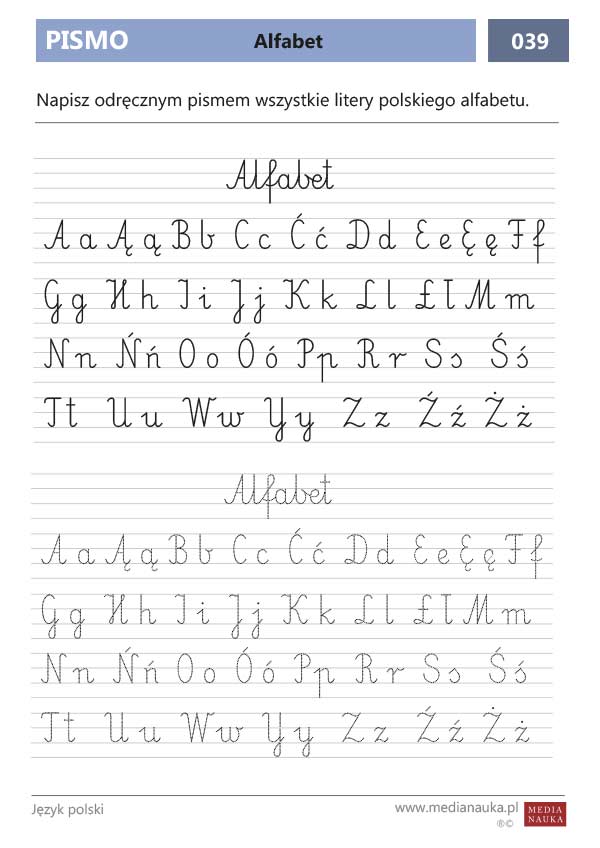 PISMO Alfabet 039
Napisz odręcznym pismem wszystkie litery polskiego alfabetu.
Alfabet
A a Ą ą B b C c Ć ć D d E e Ę ę F f
G g H h I i J j K k L l Ł ł M m
N n Ń ń O o Ó ó P p R r S s Ś ś
T t U u W w Y y Z z Ź ź Ż ż
Alfabet
A a Ą ą B b C c Ć ć D d E e Ę ę F f
G g H h I i J j K k L l Ł ł M m
N n Ń ń O o Ó ó P p R r S s Ś ś
T t U u W w Y y Z z Ź ź Ż ż
Język polski www.medianauka.pl MEDIA
®© NAUKA